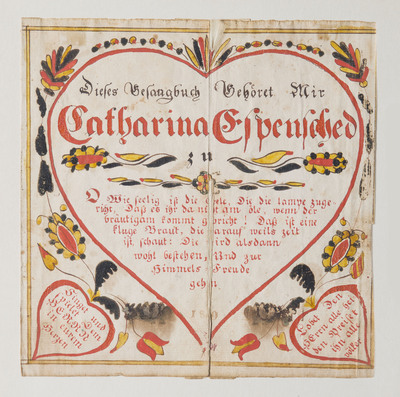 Dieses Gesangbuch Gehöret Mir
Catharina Espensched
zu
O Wie seelig ist die Seele, Die die lampe zuge-
richt, Daß es ihr da nicht am öle, wenn der
bräutigam kommt gebricht! Daß ist eine
kluge Braut, die darauf weils zeit
ist schaut: Die wird alsdann
wohl bestehen, Und zur
Himmels Freude
gehn.
Singet und
spielet Dem
HERRN
in eurem
Herzen
Lobet Den
HErrn alle hei
den Preiset
ihn all
völker